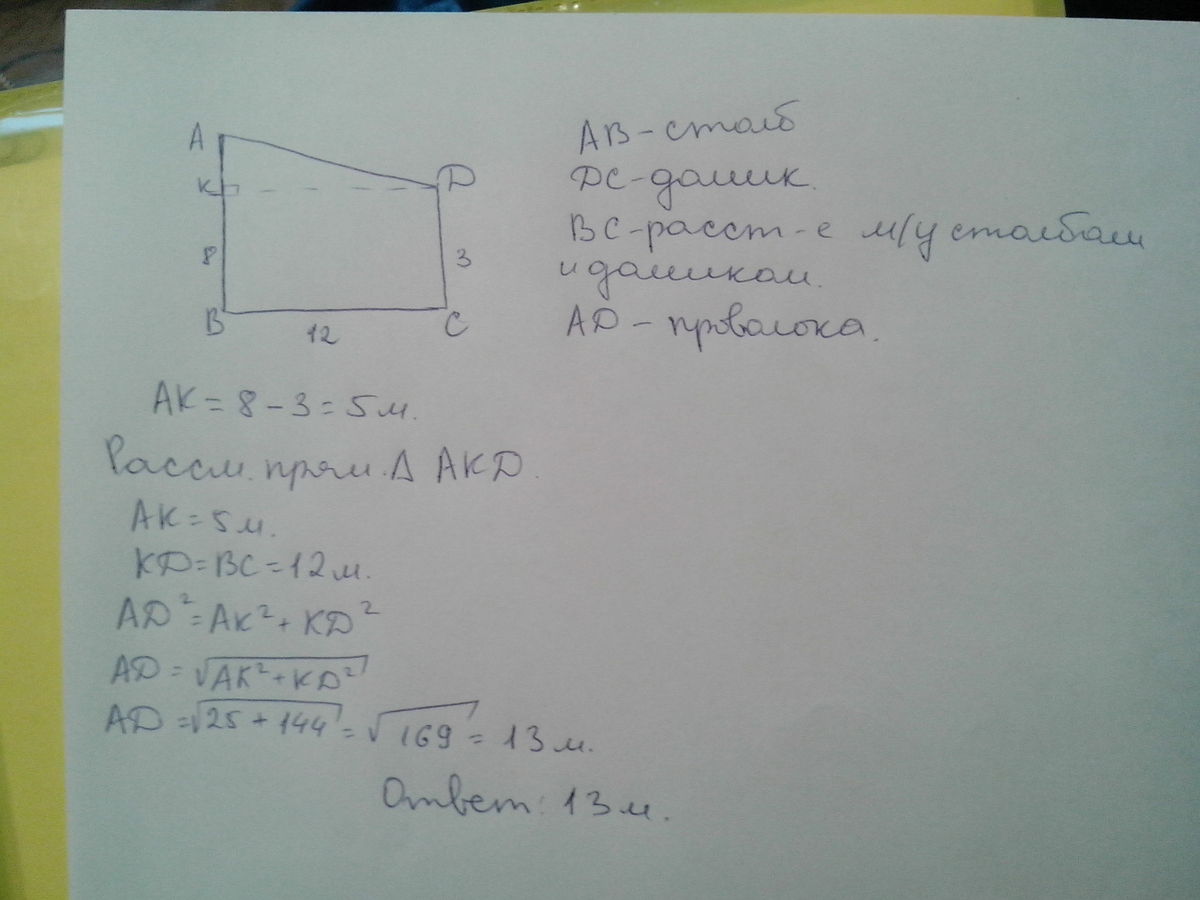 A
K
D
8
3
B
C
12
AB - столб
DC - домик.
BC - расст-е м/у столбом
и домиком.
AD - проволока.
AK = 8 - 3 = 5 м.
Рассм. прям. Δ AKD.
AK = 5 м.
KD = BC = 12 м.
AD² = AK² + KD²
AD = √AK² + KD²
AD = √25 + 144 = √169 = 13 м.
Ответ: 13 м.